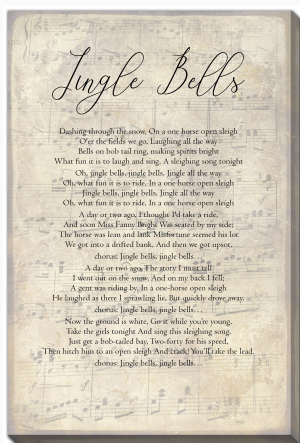 Jingle Bells
Dashing through the snow, On a one horse open sleigh
O'er the fields we go, Laughing all the way
Bells on bob tail ring, making spirits bright
What fun it is to laugh and sing, A sleighing song tonight
Oh, jingle bells, jingle bells, Jingle all the way
Oh, what fun it is to ride, In a one horse open sleigh
Jingle bells, jingle bells, Jingle all the way
Oh, what fun it is to ride, In a one horse open sleigh
A day or two ago, I thought I'd take a ride,
And soon Miss Fanny Bright Was seated by my side;
The horse was lean and lank Misfortune seemed his lot
We got into a drifted bank, And then we got upsot.
chorus: Jingle bells, jingle bells…
A day or two ago, The story I must tell
I went out on the snow, And on my back I fell;
A gent was riding by, In a one-horse open sleigh
He laughed as there I sprawling lie, But quickly drove away.
chorus: Jingle bells, jingle bells…
Now the ground is white, Go it while you're young,
Take the girls tonight And sing this sleighing song,
Just get a bob-tailed bay, Two-forty for his speed,
Then hitch him to an open sleigh And crack! You'll take the lead.
chorus: Jingle bells, jingle bells…